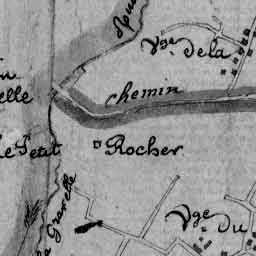 Vge de la
elle
chemin
le Petit
Rocher
la Gravelle
Vge Du